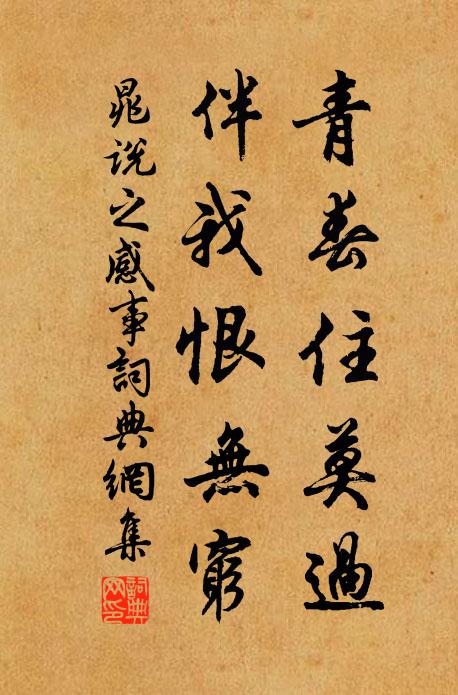 青春住莫過
伴我恨無窮
晁說之感事詞典網集
詞典網印